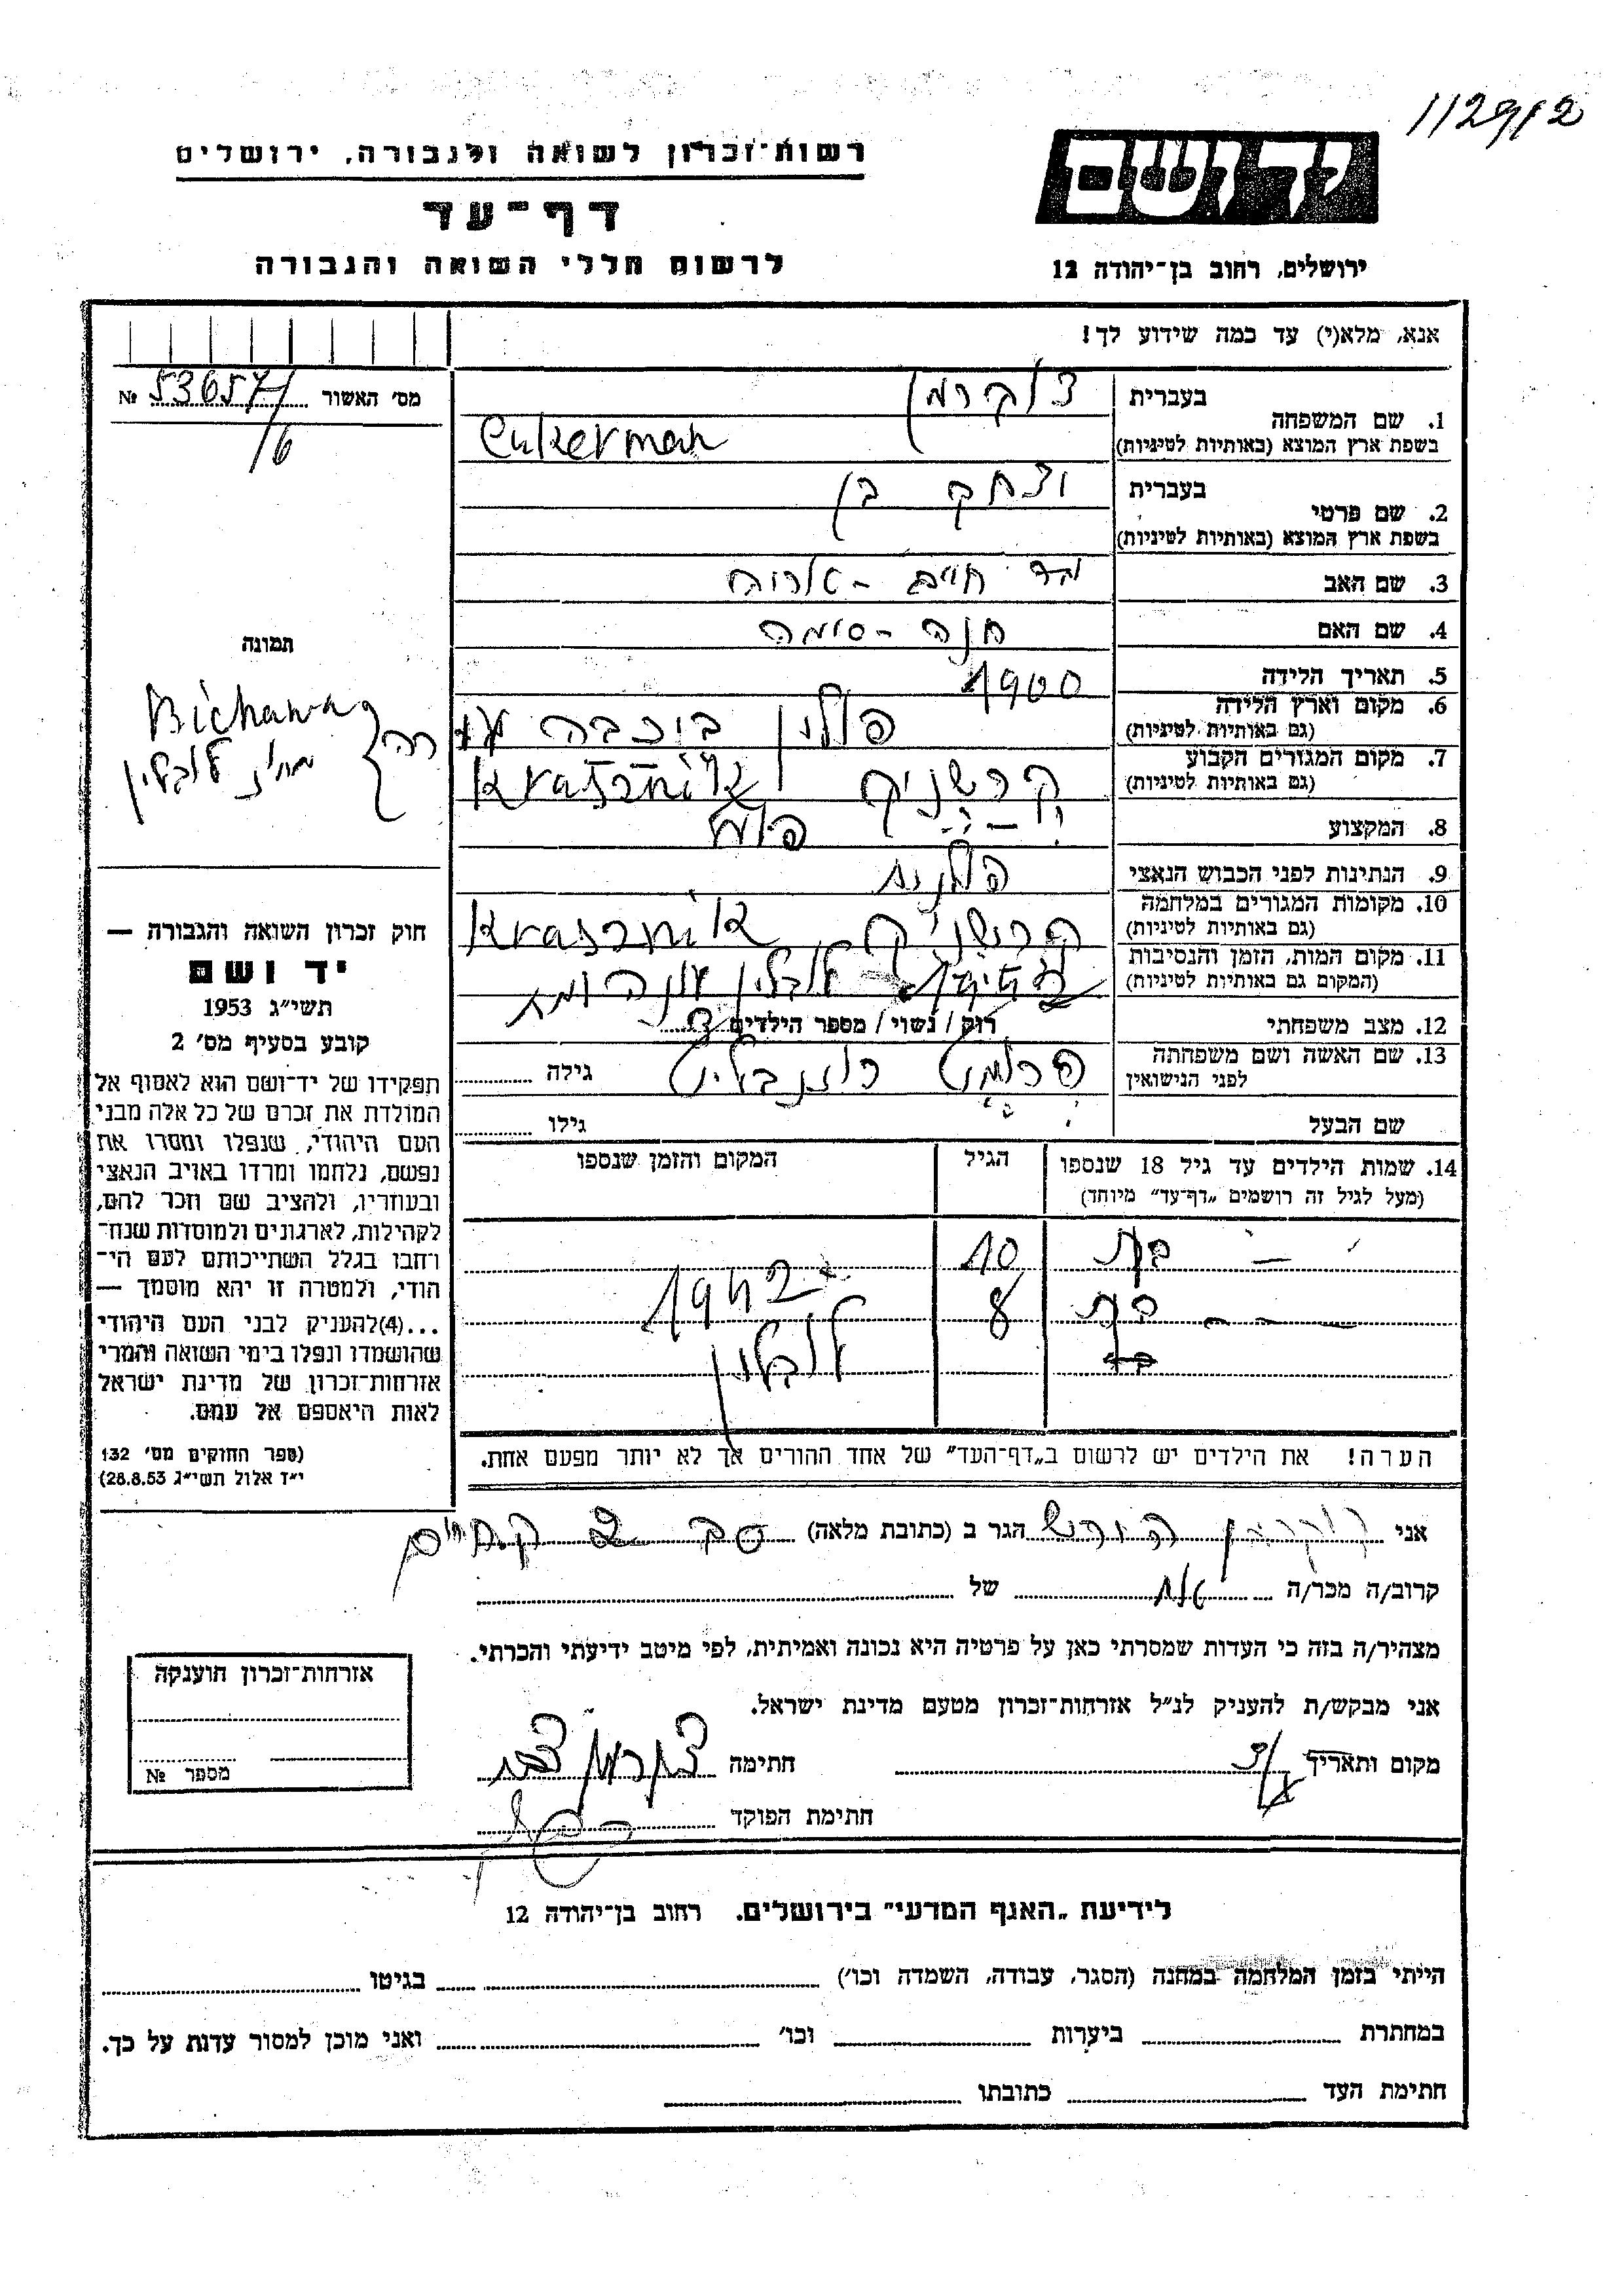 112912
רשות-זכרון לשואה ולגבורה, ירושלים
דף-עד
לרשום חללי השואה והגבורה
יד ושם
ירושלים, רחוב בן-יהודה 12
אנא, מלא(י) עד כמה שידוע לך!
מס' האשור 53657 №
/6
1. שם המשפחה
בעברית צוקרמן
בשפת ארץ המוצא (באותיות לטיניות) Cukerman
2. שם פרטי
בעברית יצחק בן
בשפת ארץ המוצא (באותיות לטיניות)
3. שם האב חיים -
4. שם האם חנה - סימה
5. תאריך הלידה 1900
6. מקום וארץ הלידה פולין
(גם באותיות לטיניות)
7. מקום המגורים הקבוע קרשניק Kraśnik
(גם באותיות לטיניות)
8. המקצוע
9. הנתינות לפני הכבוש הנאצי פולנית
10. מקומות המגורים במלחמה קרשניק Kraśnik
(גם באותיות לטיניות)
11. מקום המות, הזמן והנסיבות לובלין
(המקום גם באותיות לטיניות)
12. מצב משפחתי רווק / נשוי / מספר הילדים
13. שם האשה ושם משפחתה
לפני הנישואין גילה
שם הבעל גילו
14. שמות הילדים עד גיל 18 שנספו הגיל המקום והזמן שנספו
(מעל לגיל זה רושמים "דף-עד" מיוחד)
- בת 10 1942
- בת 8 לובלין
הערה! את הילדים יש לרשום ב"דף-העד" של אחד ההורים אך לא יותר מפעם אחת.
תמונה
Bichawa
חוק זכרון השואה והגבורה —
יד ושם
תשי"ג 1953
קובע בסעיף מס' 2
תפקידו של יד-ושם הוא לאסוף אל
המולדת את זכרם של כל אלה מבני
העם היהודי, שנפלו ומסרו את
נפשם, נלחמו ומרדו באויב הנאצי
ובעוזריו, ולהציב שם וזכר להם,
לקהילות, לארגונים ולמוסדות שנח־
רבו בגלל השתייכותם לעם הי־
הודי, ולמטרה זו יהא מוסמך —
...(4) להעניק לבני העם היהודי
שהושמדו ונפלו בימי השואה והמרי
אזרחות-זכרון של מדינת ישראל
לאות היאספם אל עמם.
(ספר החוקים מס' 132
י"ד אלול תשי"ג 28.8.53)
אני הגר ב (כתובת מלאה)
קרוב/ה מכר/ה של
מצהיר/ה בזה כי העדות שמסרתי כאן על פרטיה היא נכונה ואמיתית, לפי מיטב ידיעתי והכרתי.
אני מבקש/ת להעניק לנ"ל אזרחות-זכרון מטעם מדינת ישראל.
מקום ותאריך חתימה צוקרמן
חתימת הפוקד
אזרחות-זכרון הוענקה
מספר №
לידיעת "האגף המדעי" בירושלים. רחוב בן-יהודה 12
הייתי בזמן המלחמה במחנה (הסגר, עבודה, השמדה וכו') בגיטו
במחתרת ביערות וכו' ואני מוכן למסור עדות על כך.
חתימת העד כתובתו